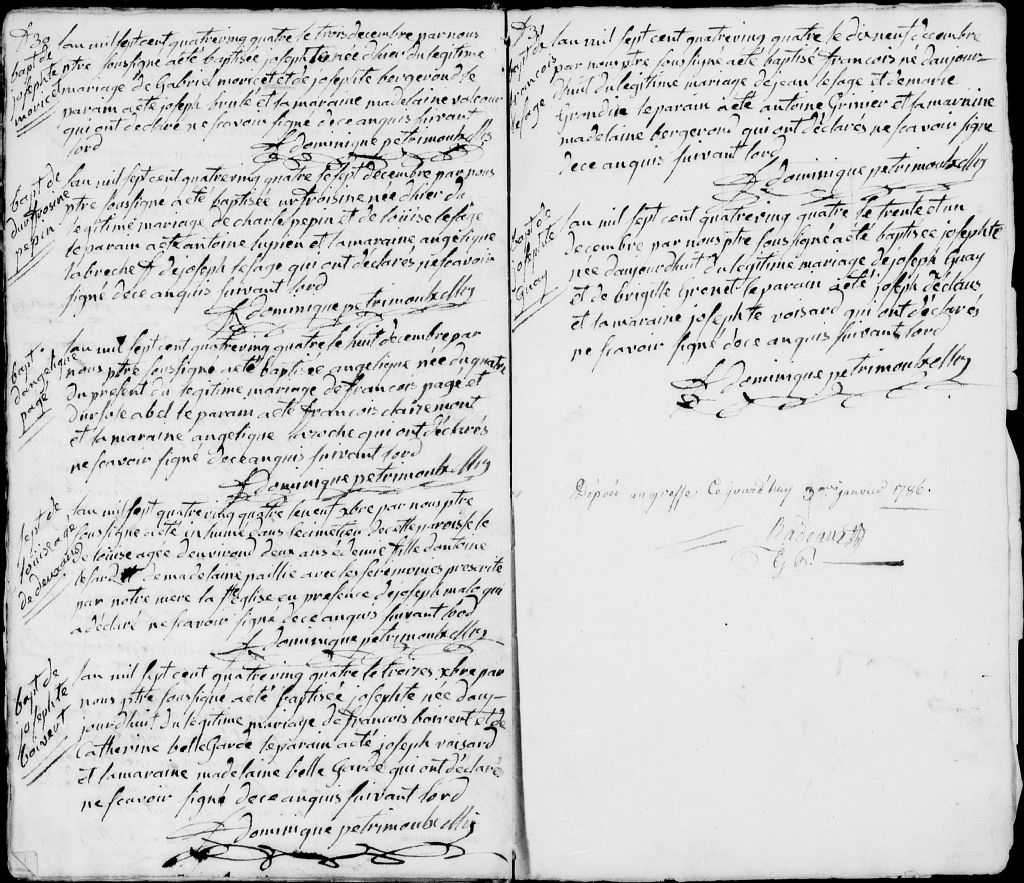 B 30
bapt de
josephte
moricet
lan mil sept cent quatreving quatre le trois decembre par nous
ptre soussigné a été baptisée josephte née d hier du legitime
mariage de Gabriel moricet et de josephte bergerond le
parain a été joseph brulé et la maraine madelaine valcour
qui ont déclaré ne scavoir signé de ce anquis suivant
lord
f dominique petrimoulx
bapt de
pepin
lan mil sept cent quatreving quatre le sept decembre par nous
ptre soussigné a été baptisée née d hier du
legitime mariage de charle pepin et de louise lesage
le parain a été antoine lupien et la maraine angelique
la breche f de joseph lesage qui ont déclares ne scavoir
signé de ce anquis suivant lord
f dominique petrimoulx
bapt
d angelique
pagé
lan mil sept cent quatreving quatre le huit decembre par
nous ptre soussigné a été baptisée angelique née du quatre
du present du legitime mariage de francois pagé et
abel le parain a été francois clairemont
et la maraine angelique laroche qui ont déclarés
ne scavoir signé de ce anquis suivant lord
f dominique petrimoulx
sept de
louise agé
de deux ans
lan mil sept quatreving quatre le neuf xbre par nous ptre
soussigné a été inhumé dans le cimetier de cette paroisse le
de louise agee d environd deux ans et demie fille d antoine
de madelaine paillie avec les seremonies prescrite
par notre mere la ste eglise en presence de joseph qui
a déclaré ne scavoir signé de ce anquis suivant lord
f dominique petrimoulx
bapt de
josephte
boivert
lan mil sept cent quatreving quatre le treizes xbre par
nous ptre soussigné a été baptisée josephte née d auj-
jourdhuit du legitime mariage de francois boivert et de
Catherine belle Garde le parain a été joseph voisard
et la maraine madelaine belle Garde qui ont déclaré
ne scavoir signé de ce anquis suivant lord
f dominique petrimoulx
bapt de
francois
lesage
lan mil sept cent quatreving quatre le dix neuf decembre
par nous ptre soussigné a été baptisé francois né daujour-
dhuit du legitime mariage de jean lesage et de marie
le parain a été antoine Grinier et la marnine
madelaine bergerond qui ont déclarés ne scavoir signe
de ce anquis suivant lord
f dominique petrimoulx
bapt de
josephte
Guay
lan mil sept cent quatreving quatre le trente et un
decembre par nous ptre soussigné a été baptisée josephte
née daujourdhuit du legitime mariage de joseph Guay
et de brigitte Grenet le parain a été joseph declaus
et la maraine josephte voisard qui ont déclarés
ne scavoir signé de ce anquis suivant lord
f dominique petrimoulx
Déposée au greffe. Ce jourd'huy janvier 1786.
Badeaux